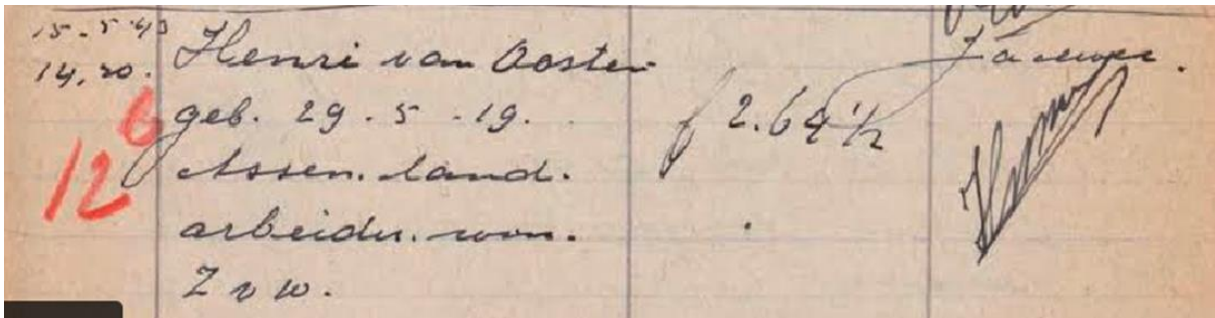 15-5-43
14,20.
12 6
Henri van Ooster
geb. 29.5.19.
Assen. land.
arbeider. won.
Z v w.
f 2.64 1/2